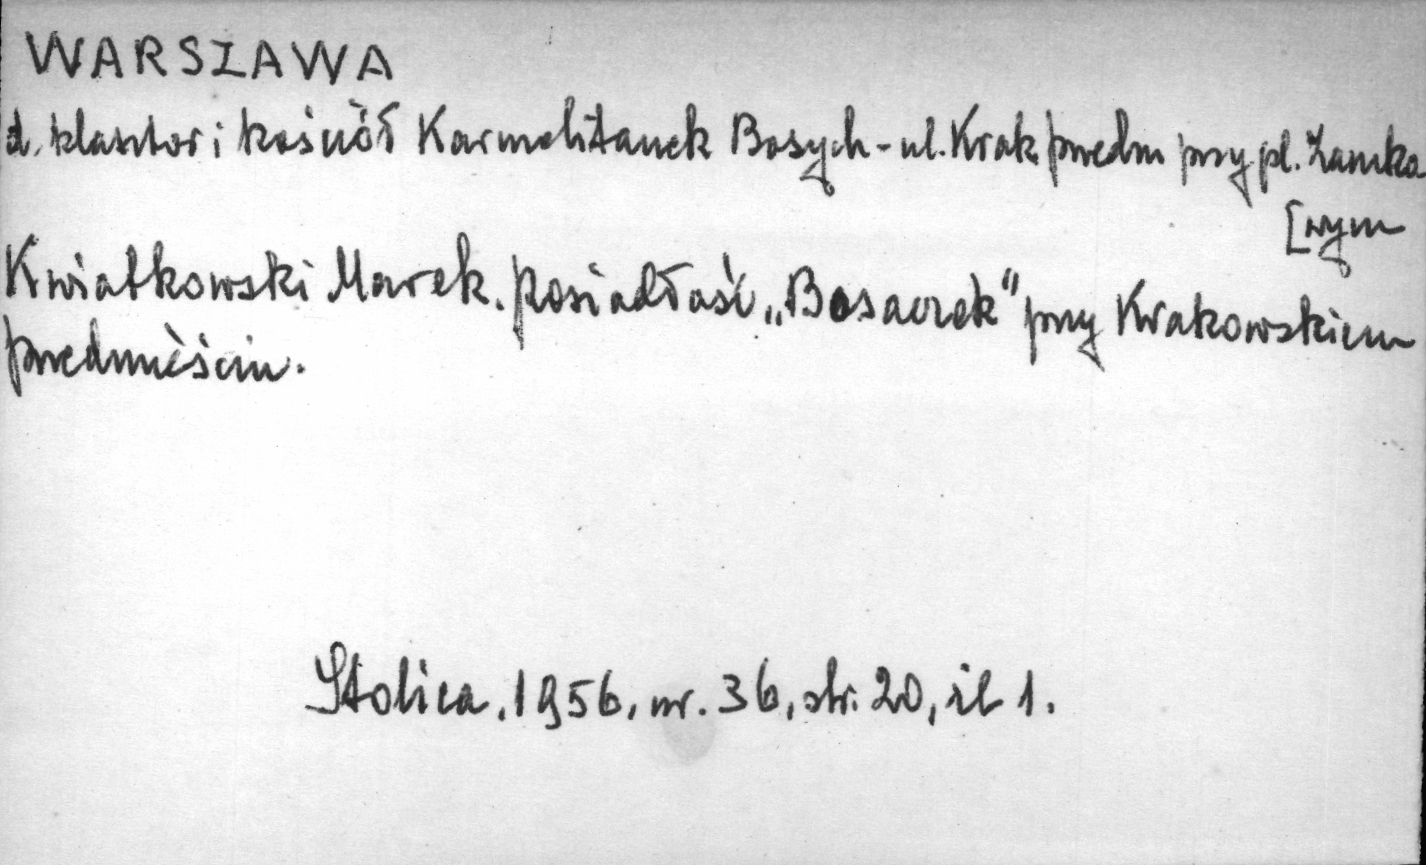 WARSZAWA
d. klasztor i kościół Karmelitanek Bosych - ul. Krak. przedm przy pl. Zamko
[wym
Kwiatkowski Marek. Posiadłość „Bosaczek" przy Krakowskiem
Przedmieściu.
Stolica, 1956, nr. 36, str. 20, il 1.